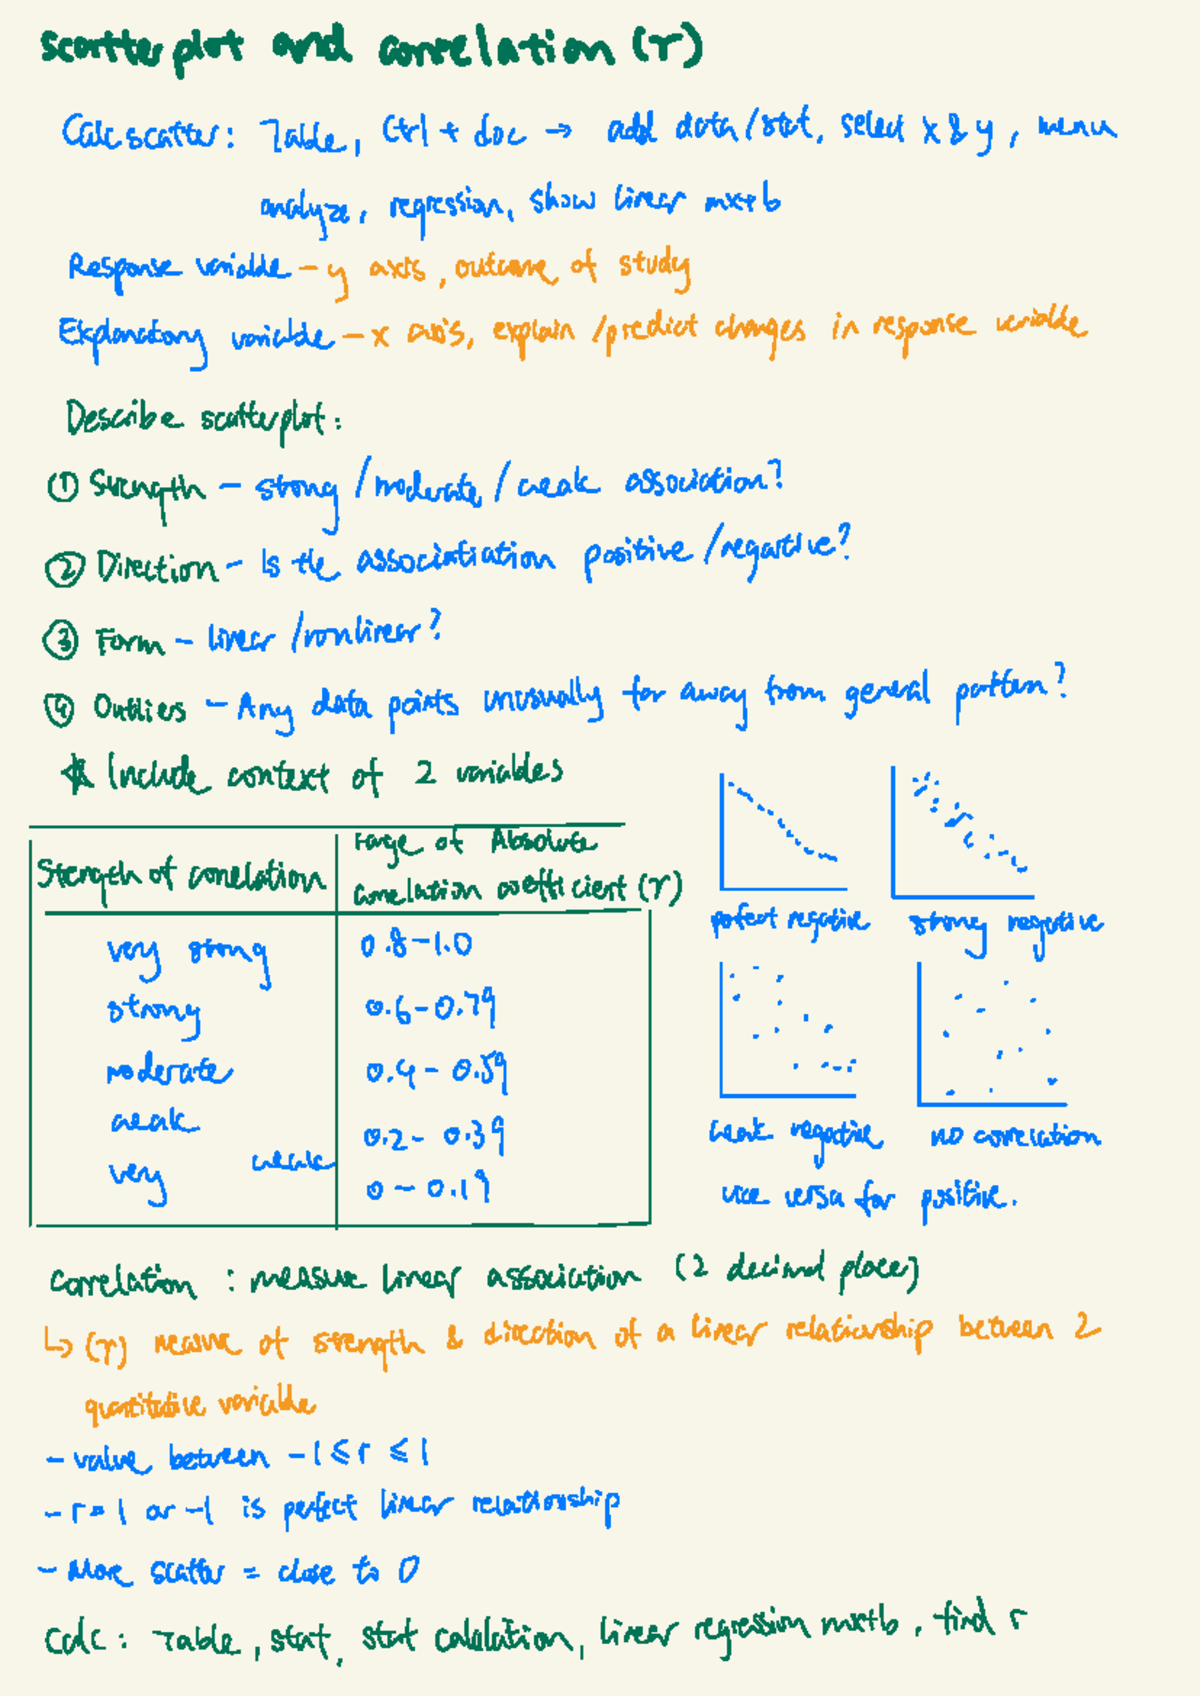 scatterplot and correlation (r)
Calc scatter: Table, Ctrl + doc → add data/stat, select x & y, menu
analyze, regression, show linear mx+b
Response variable – y axis, outcome of study
Explanatory variable – x axis, explain / predict changes in response variable
Describe scatterplot:
① Strength – strong / moderate / weak association?
② Direction – Is the associatiation positive / negative?
③ Form – linear / nonlinear?
④ Outliers – Any data points unusually far away from general pattern?
Include context of 2 variables
Strength of correlation
Range of Absolute
correlation coefficient (r)
very strong 0.8 – 1.0
strong 0.6 – 0.79
moderate 0.4 – 0.59
weak 0.2 – 0.39
very weak 0 – 0.19
perfect negative strong negative
weak negative no correlation
vice versa for positive.
correlation : measure linear association (2 decimal place)
↳ (r) measure of strength & direction of a linear relationship between 2
quantitative variable
– value between –1 ≤ r ≤ 1
– r = 1 or –1 is perfect linear relationship
– More scatter = close to 0
Calc : Table, stat, stat calculation, linear regression mx+b, find r